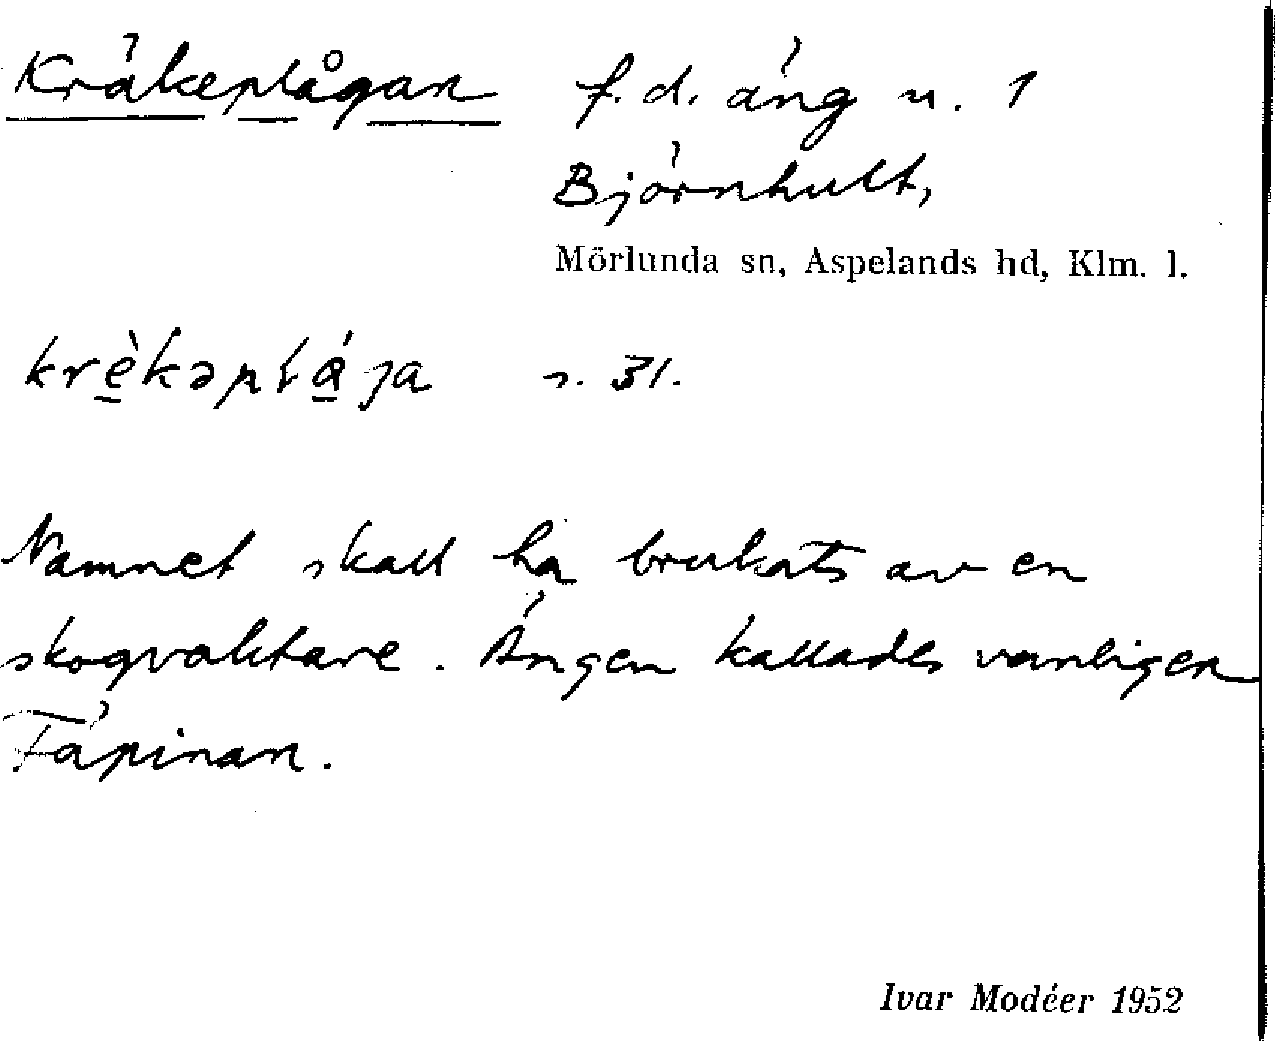 Kräkeplågan f.d. äng n. 1
Björnhult,
Mörlunda sn, Aspelands hd, Klm. l.
krèkəplága s. 31.
Namnet skall ha brukats av en
skogvaktare. Ängen kallades vanligen
Fäpinan.
Ivar Modéer 1952